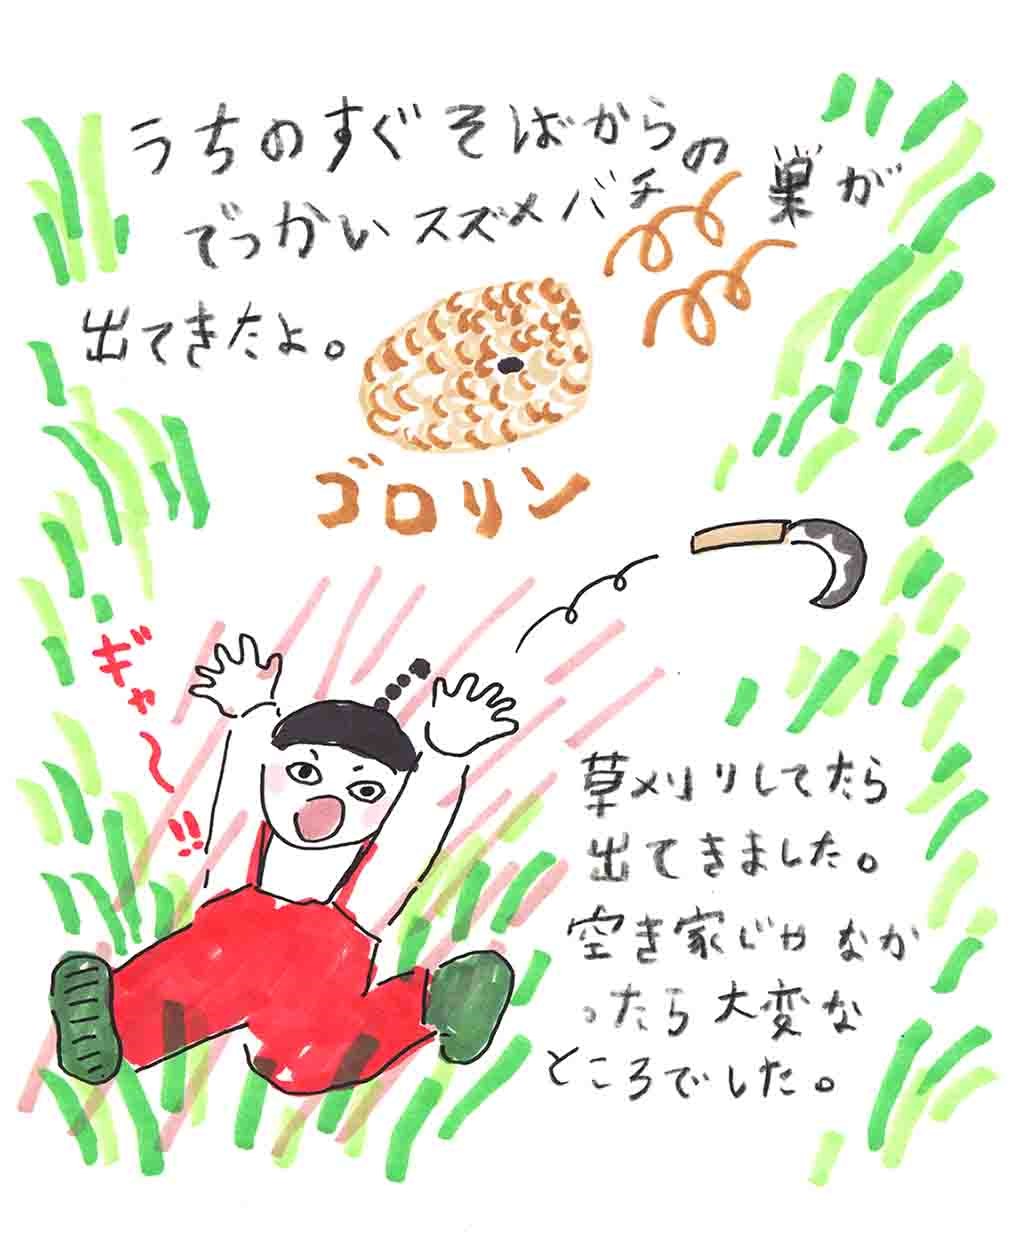 うちのすぐそばから
でっかいスズメバチの巣が
出てきたよ。
ゴロリン
ギャ〜!!
草刈りしてたら
出てきました。
空き家じゃなか
ったら大変な
ところでした。